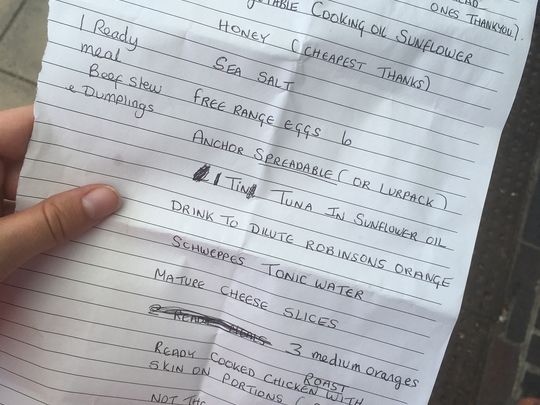 ONES THANKYOU).
COOKING OIL SUNFLOWER
HONEY (CHEAPEST THANKS)
SEA SALT
FREE RANGE EGGS 6
ANCHOR SPREADABLE (OR LURPACK)
1 TIN TUNA IN SUNFLOWER OIL
DRINK TO DILUTE ROBINSONS ORANGE
SCHWEPPES TONIC WATER
MATURE CHEESE SLICES
3 medium oranges
READY COOKED ROAST CHICKEN WITH
SKIN ON PORTIONS (
NOT
1 Ready
meal
Beef stew
& Dumplings